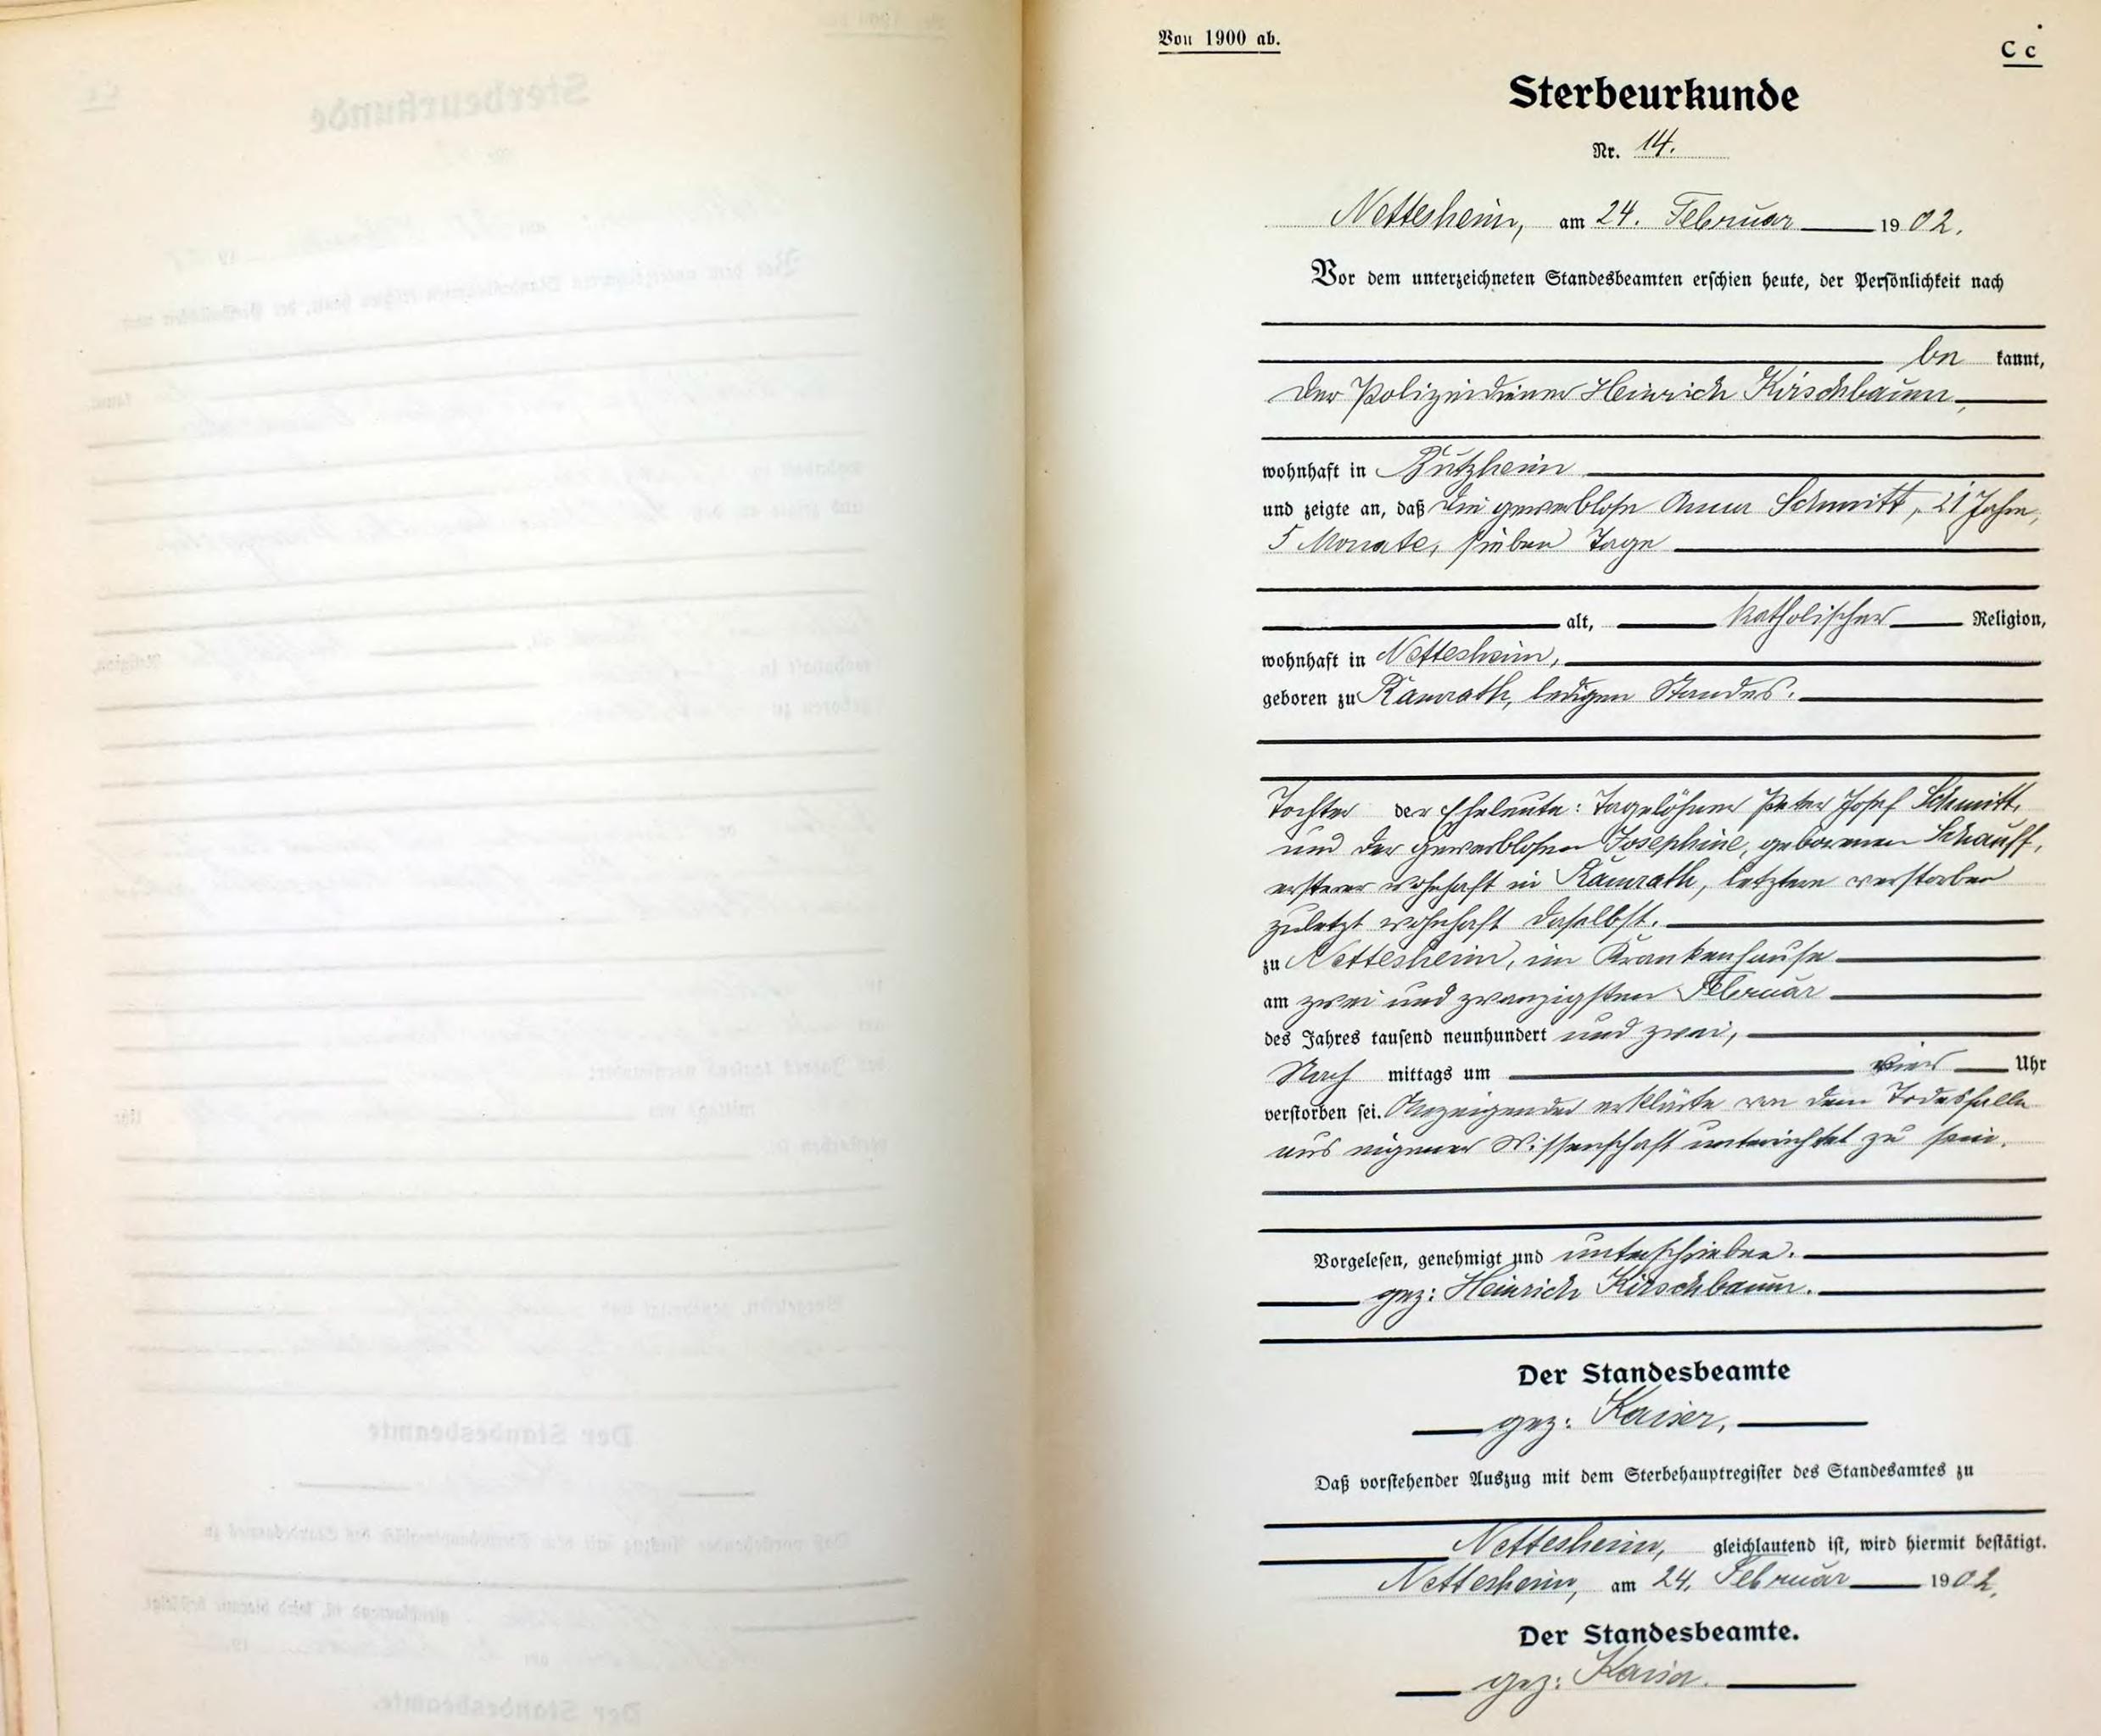 Von 1900 ab.
C c
Sterbeurkunde
Nr. 14.
Nettesheim, am 24. Februar 1902.
Vor dem unterzeichneten Standesbeamten erschien heute, der Persönlichkeit nach
be kannt,
der Polizeidiener Heinrich Kirschbaum,
wohnhaft in Butzheim
und zeigte an, daß die gewerblose Anna Schmitt, 21 Jahre,
5 Monate, sieben Tage
alt, katholischer Religion,
wohnhaft in Nettesheim,
geboren zu Ramrath, ledigen Standes.
Tochter der Eheleute: Tagelöhner Peter Josef Schmitt,
und der gewerblosen Josephine, geborenen Schauff,
ersterer wohnhaft in Ramrath, letztere verstorben
zuletzt wohnhaft daselbst.
zu Nettesheim, im Krankenhause
am zwei und zwanzigsten Februar
des Jahres tausend neunhundert und zwei,
Nach mittags um vier Uhr
verstorben sei. Anzeigender erklärte von dem Todesfalle
aus eigener Wissenschaft unterrichtet zu sein.
Vorgelesen, genehmigt und unterschrieben.
gez: Heinrich Kirschbaum.
Der Standesbeamte
gez: Kaiser,
Daß vorstehender Auszug mit dem Sterbehauptregister des Standesamtes zu
Nettesheim, gleichlautend ist, wird hiermit bestätigt.
Nettesheim, am 24. Februar 1902.
Der Standesbeamte.
gez: Kaiser.